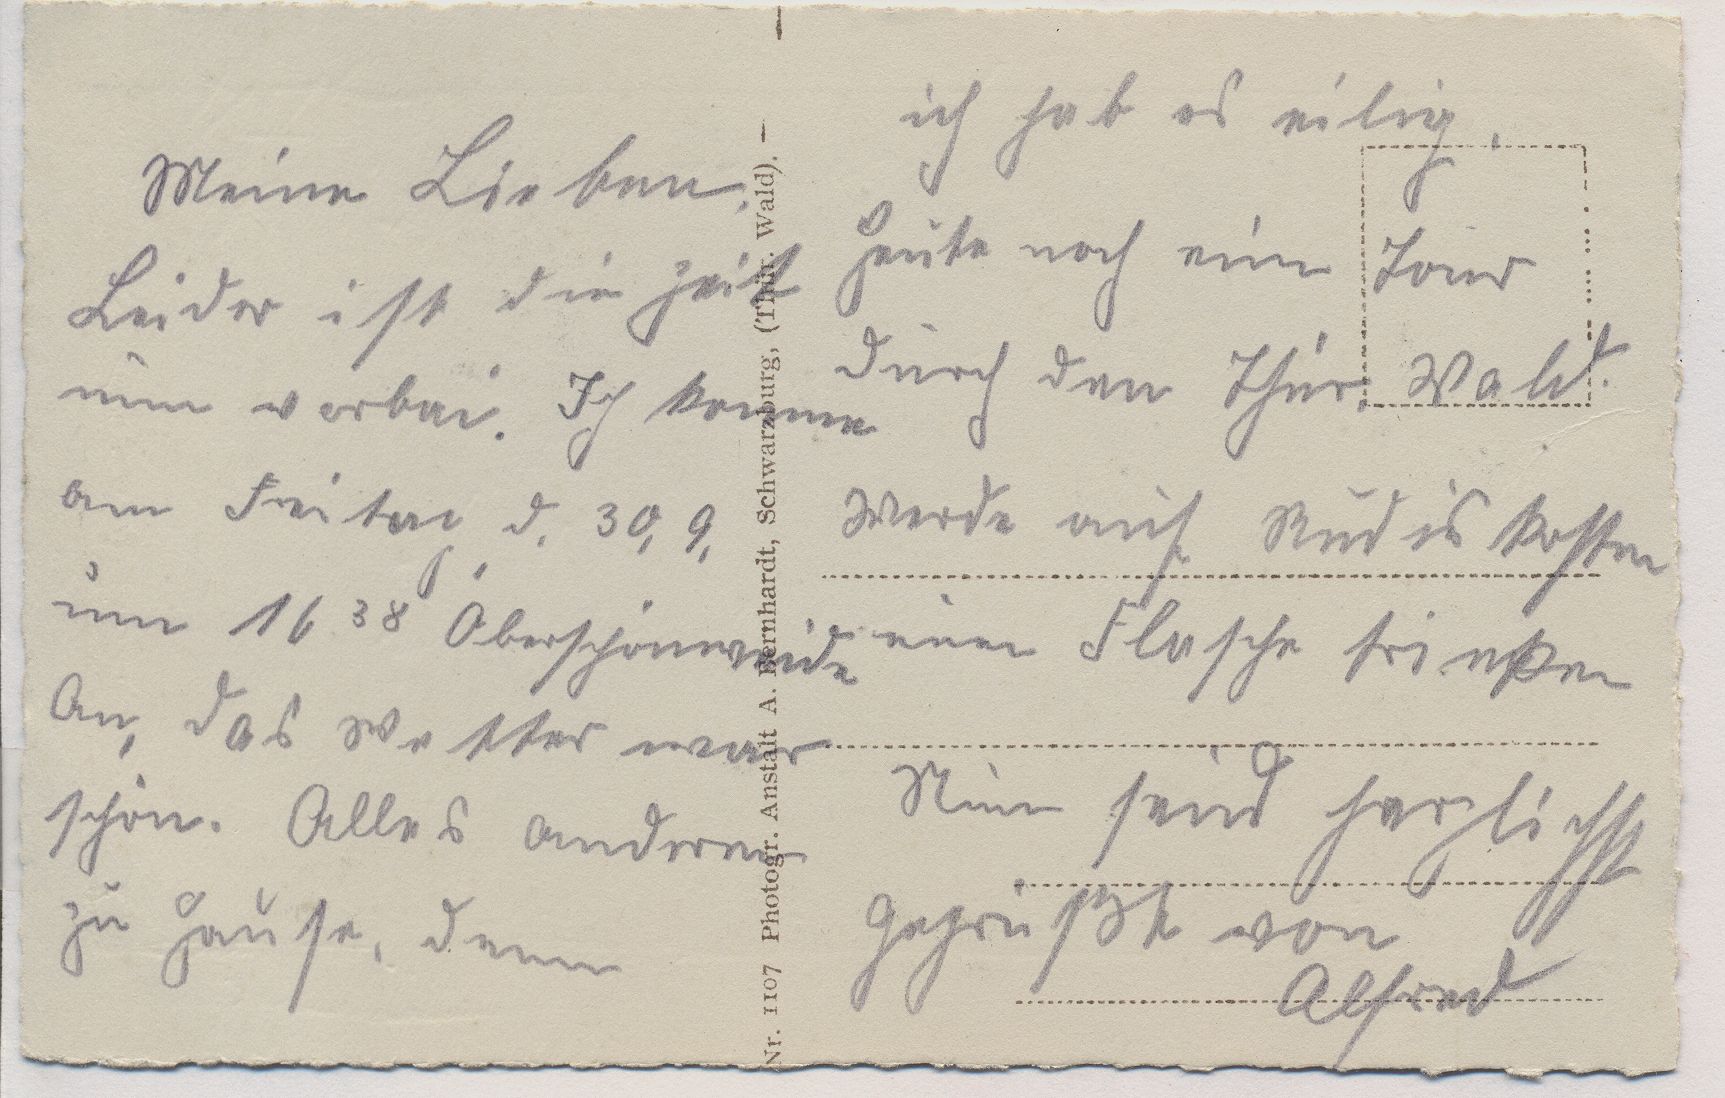 Meine Lieben,
Leider ist die Zeit
nun vorbei. Ich komme
am Freitag, d. 30. 9.
um 16 38 Oberschönweide
an, das Wetter war
schön. Alles andere
zu Hause, denn
ich hab es eilig,
Heute noch eine Tour
durch den Thür. Wald.
Werde auf Rudis Kosten
eine Flasche trinken
Nun seid herzlichst
gegrüßt von
Alfred
Nr. 1107 Photogr. Anstalt A. Bernhardt, Schwarzburg, (Thür. Wald). —